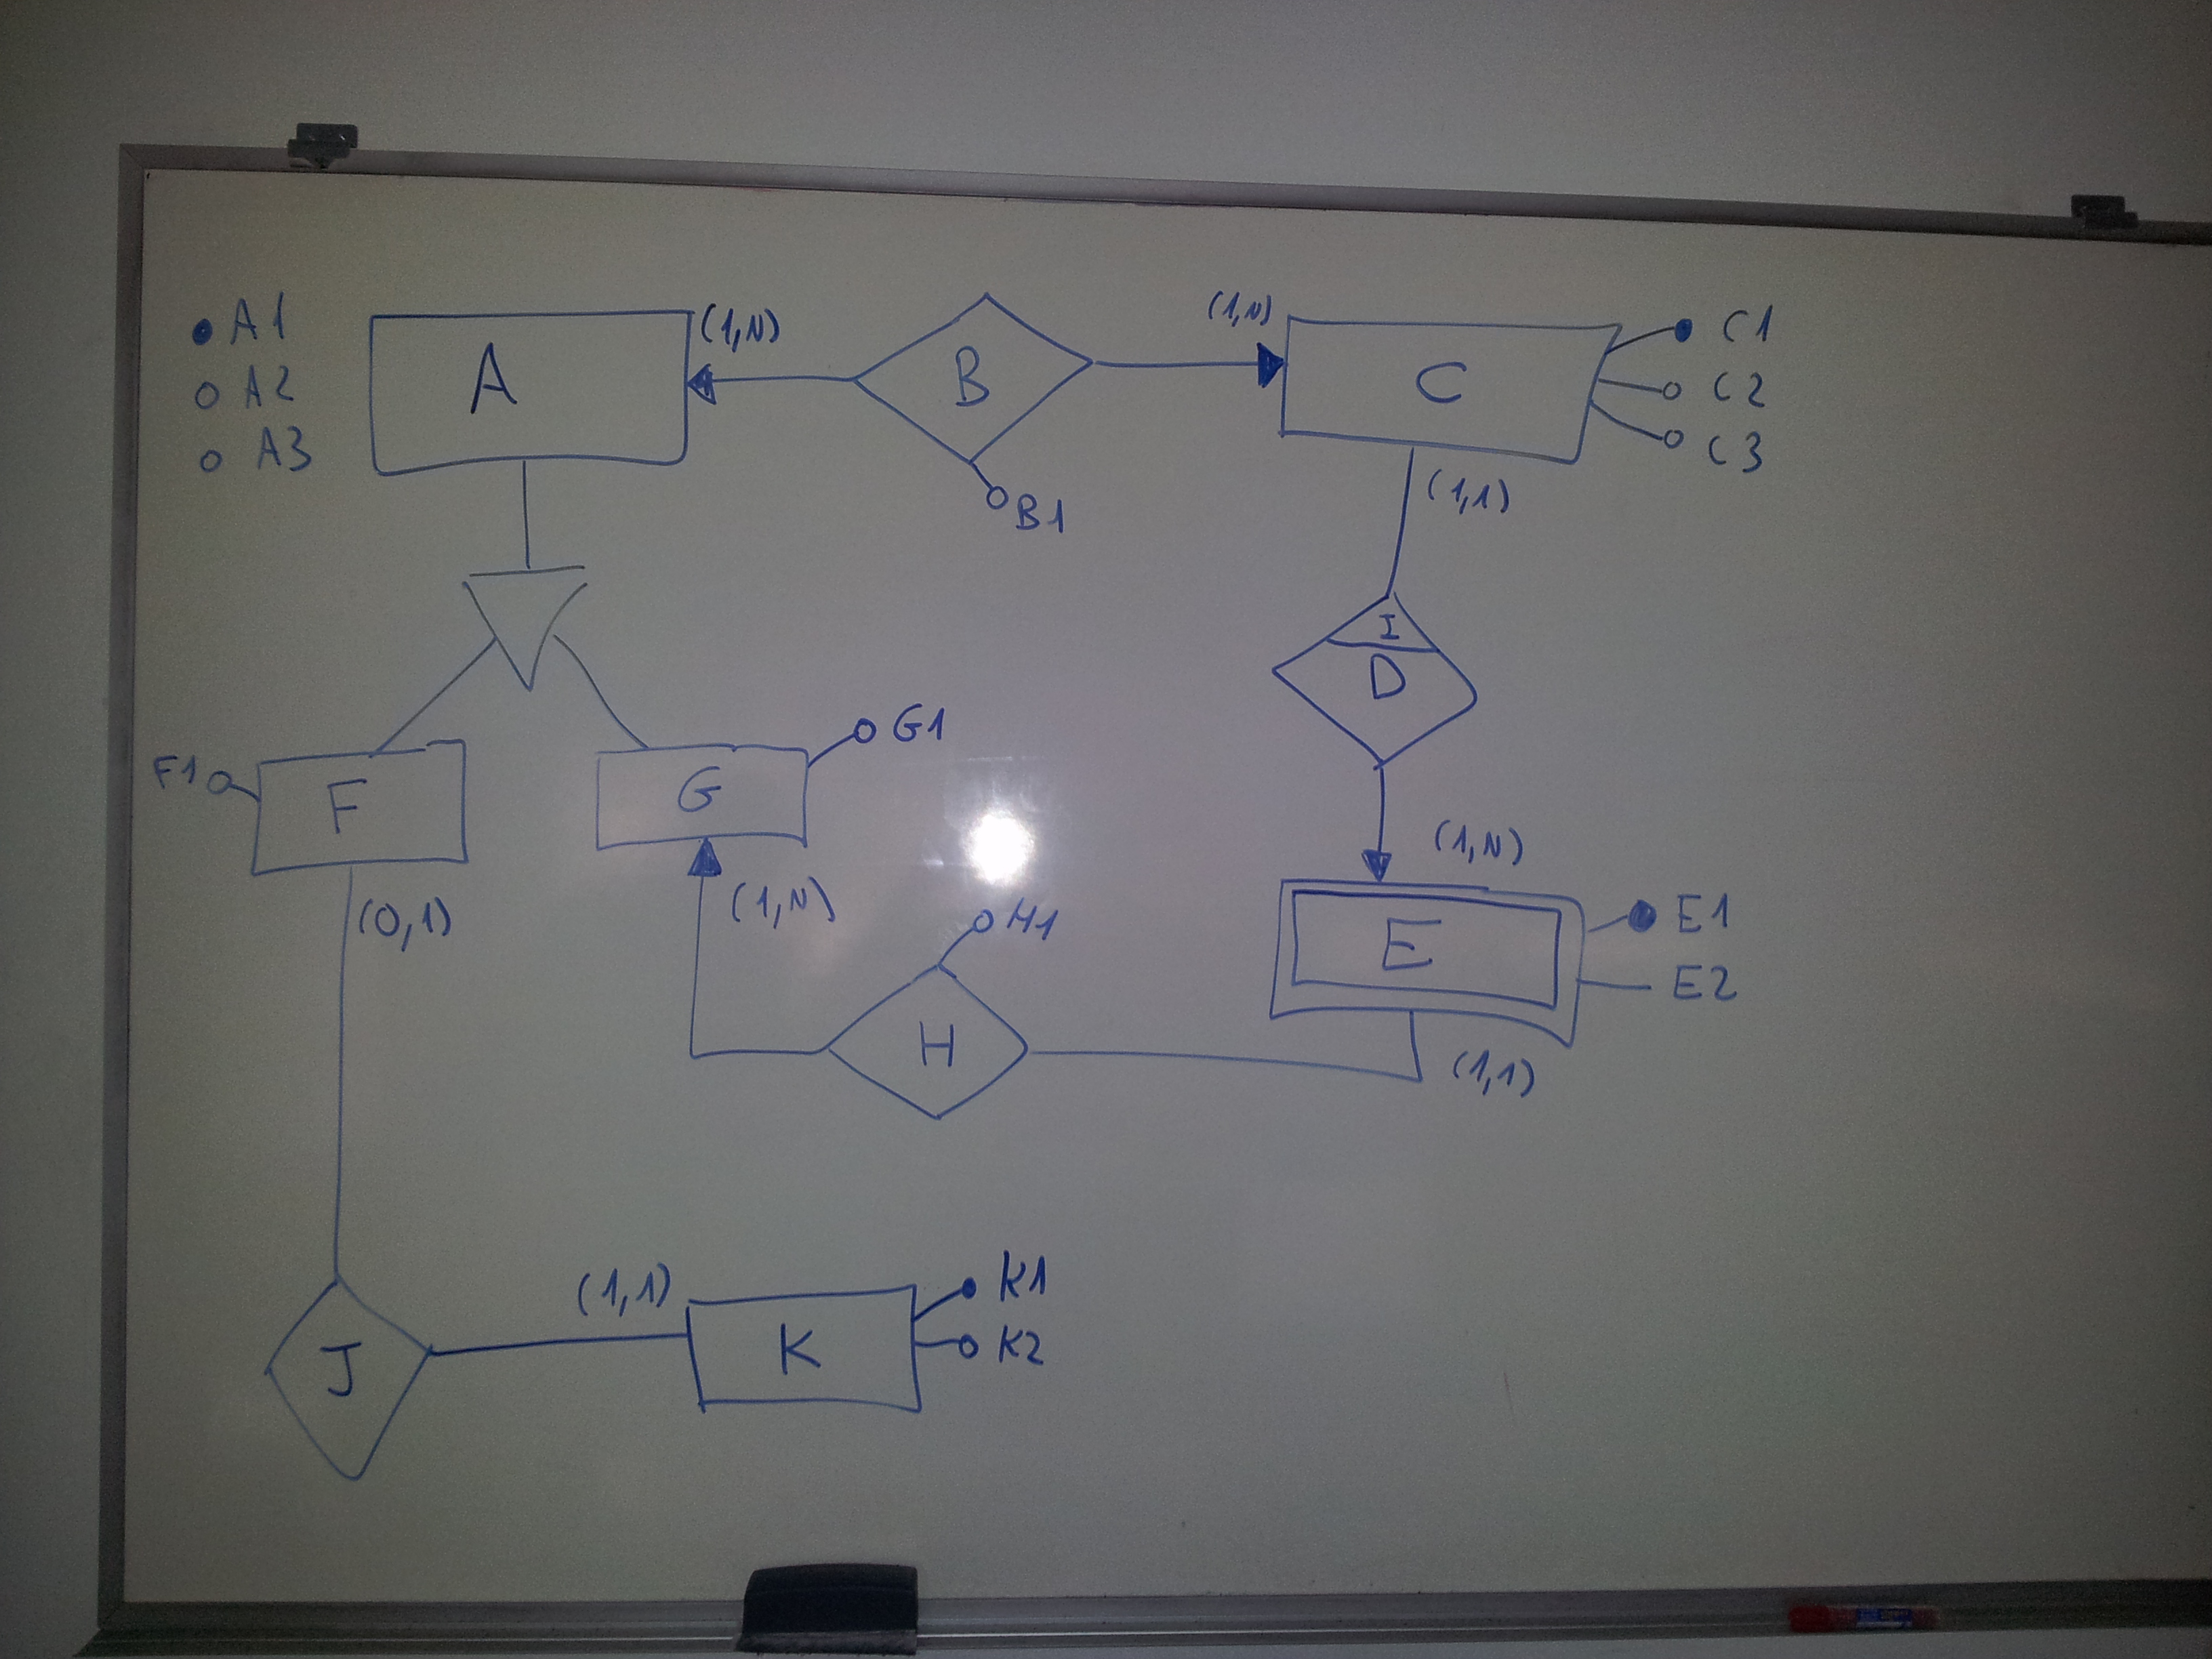 A1
A2
A3
A
(1,N)
B
B1
(1,N)
C
C1
C2
C3
(1,1)
I
D
(1,N)
E
E1
E2
(1,1)
F1
F
(0,1)
G
G1
(1,N)
H1
H
J
(1,1)
K
K1
K2